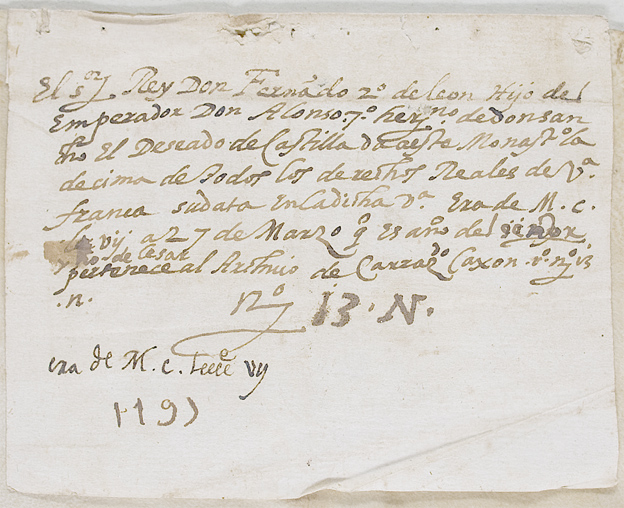 El s.or Rey Don Fernãdo 2.º de leon Hijo del
Emperador Don Alonso.7.º herm.no de don san
cho El Deseado de Castilla da a este Monast.º la
decima de todos los derechos Reales de V.a
franca su data en la dicha V.a Era de M. C.
vij a 27 de Marzo q es año del señor
de Cesar
pertenece al Archivo de Carrazdo Caxon 1.º nº 13
.n.
Nº 13. N.
era de M. c. Vij
1197